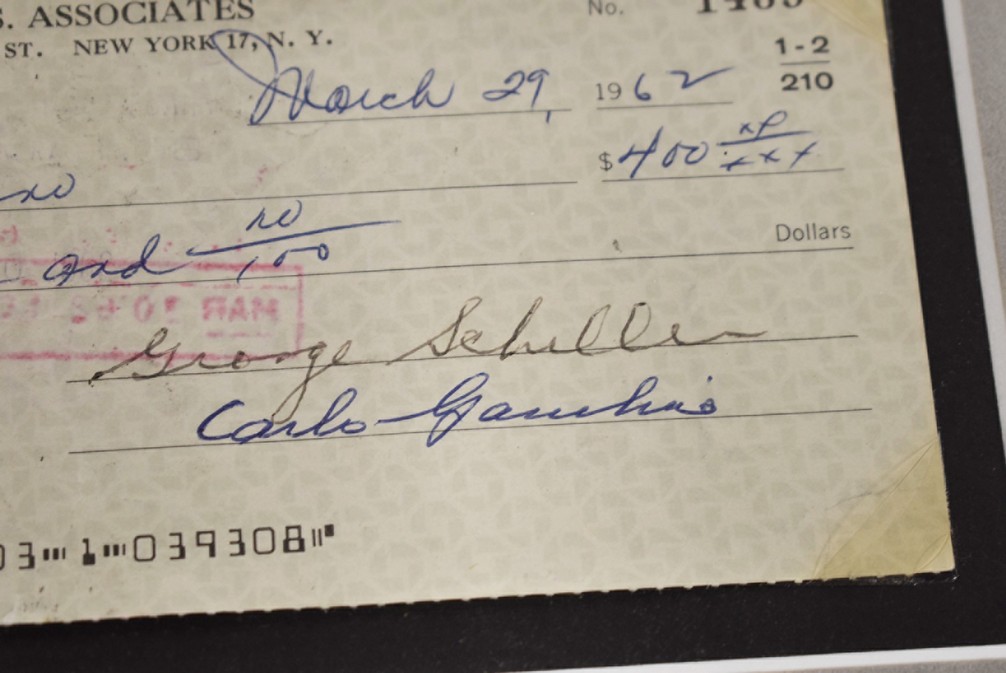 S. ASSOCIATES
ST. NEW YORK 17, N. Y.
No. 1485
March 29, 1962
1-2
210
$ 400 xx
xxx
and no
100
Dollars
MAR 30 62
George Schiller
Carlo Gambino
03 1 039308